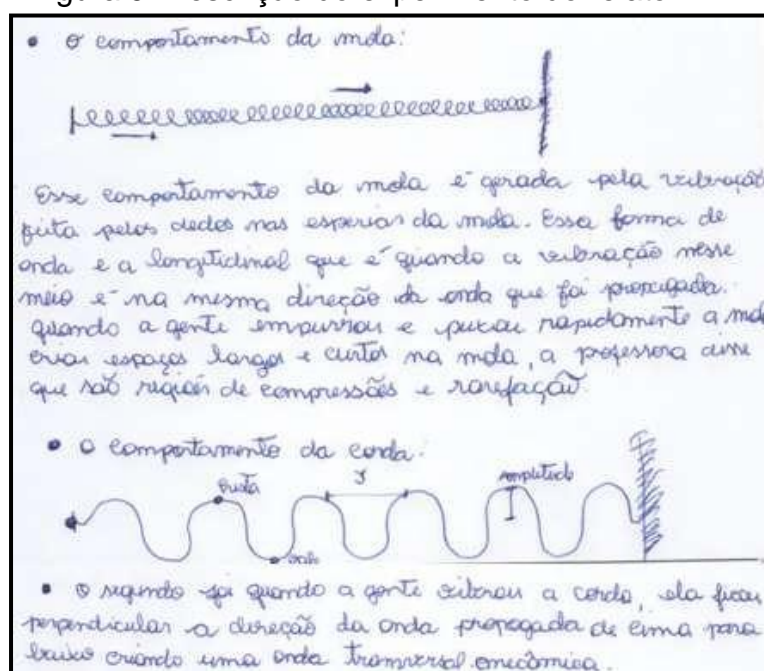 • O comportamento da mola:
Esse comportamento da mola é gerada pela vibração
feita pelos dedos nas esperias da mola. Essa forma de
onda e a longitidinal que é quando a vibração nesse
meio é na mesma direção da onda que foi propagada.
quando a gente empurrou e puxou rapidamente a mola
criou espaços largos e curtos na mola, a professora disse
que são regiões de compressões e rarefação.
• O comportamento da corda:
crista
amplitude
vale
• O segundo foi quando a gente vibrou a corda, ela ficou
perpendicular a direção da onda propagada de cima para
baixo criando uma onda transversal